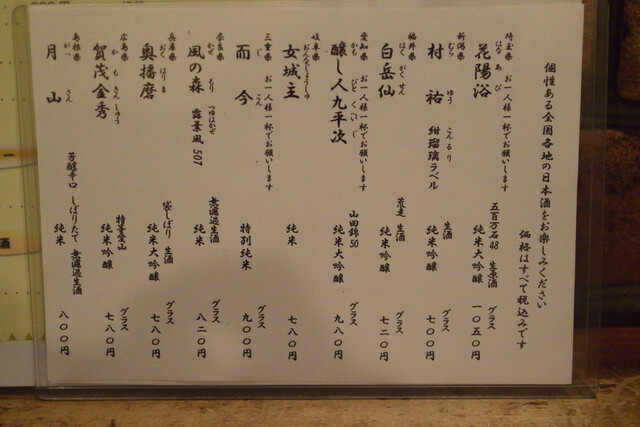 個性ある全国各地の日本酒をお楽しみください
価格はすべて税込みです
埼玉県 お一人様一杯でお願いします
はな あ び
花陽浴
五百万石48 生原酒
純米大吟醸
グラス
一〇五〇円
新潟県
むら ゆう こんるり
村祐 紺瑠璃ラベル
生酒
純米吟醸
グラス
七〇〇円
福井県
はく がく せん
白岳仙
荒走 生酒
純米吟醸
グラス
七二〇円
愛知県 お一人様一杯でお願いします
かも びと くへいじ
醸し人九平次
山田錦50
純米大吟醸
グラス
九八〇円
岐阜県
おんなじょうしゅ
女城主
純米
グラス
七八〇円
三重県 お一人様一杯でお願いします
じ こん
而今
特別純米
グラス
九〇〇円
奈良県
かぜ もり つゆはかぜ
風の森 露葉風507
無濾過生酒
純米
グラス
八二〇円
兵庫県
おく はりま
奥播磨
袋しぼり 生酒
純米大吟醸
グラス
七八〇円
広島県
か も きんしゅう
賀茂金秀
特等雄山
純米吟醸
グラス
七八〇円
島根県
がっ さん
月山
芳醇辛口 しぼりたて 無濾過生酒
純米
グラス
八〇〇円